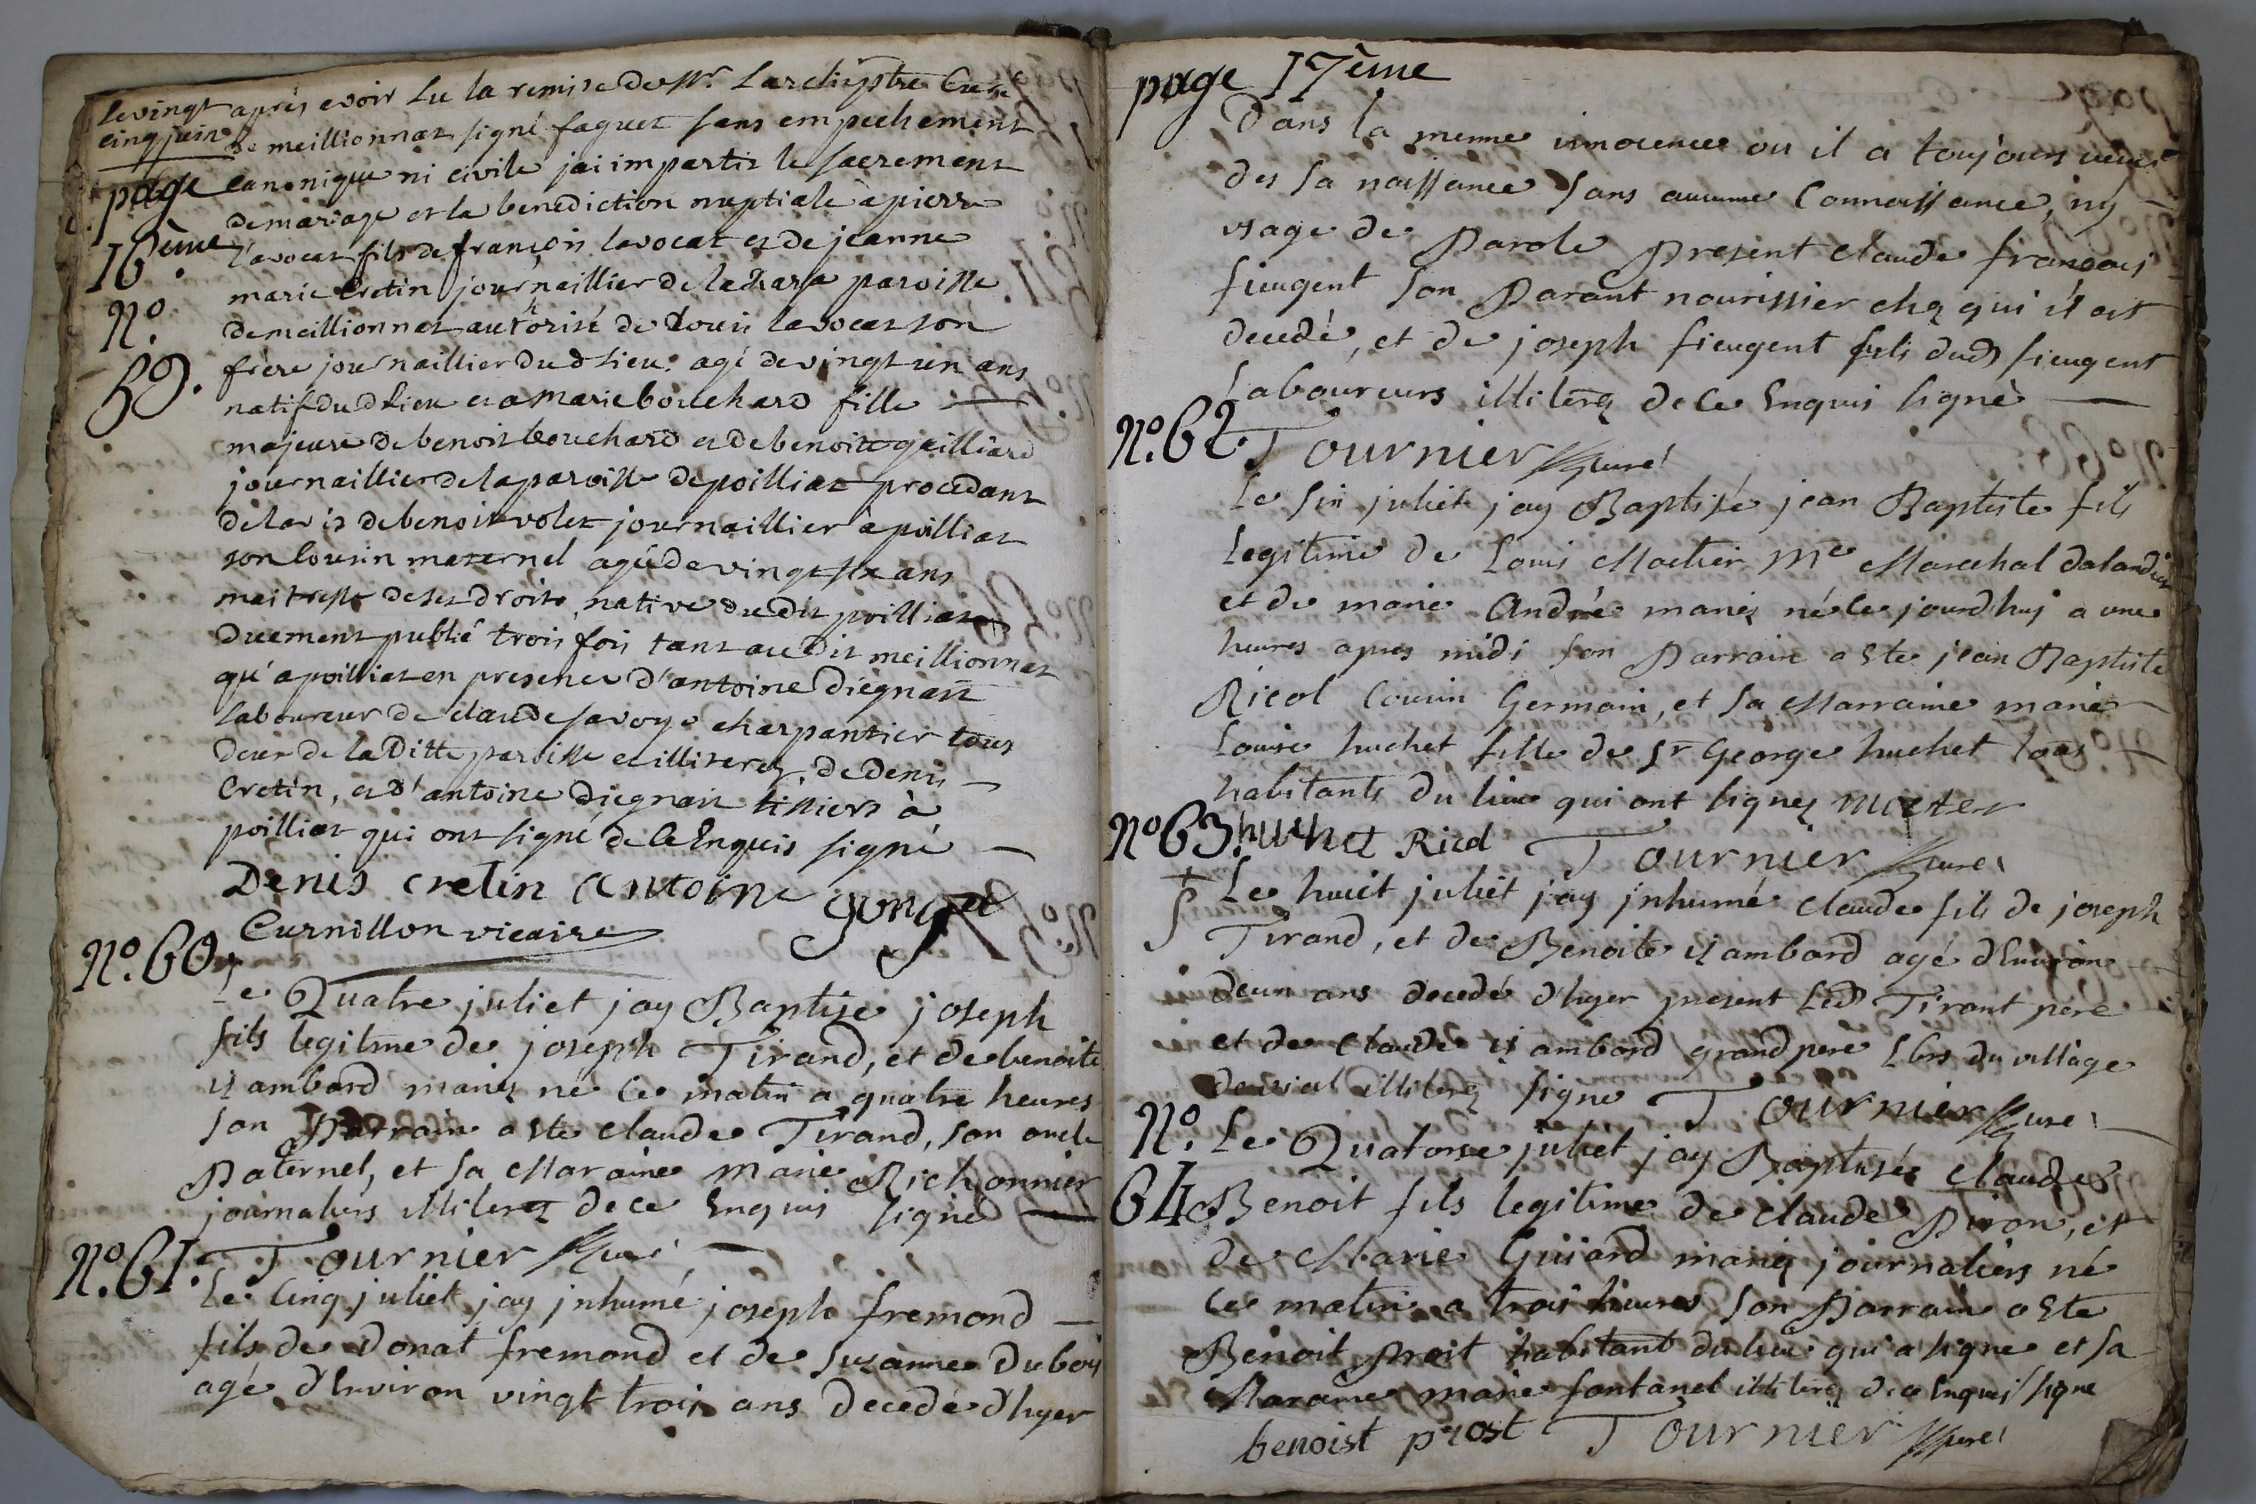 le vingt
cinq juin
après avoir lu la remise de Mr. Larchiprtre Curé
de meillionnaz signé faguet sans empechement
page canonique ni civile jai impartir le sacrement
de mariage et la benediction nuptiale a pierre
16ème lavocat fils de françois lavocat et de jeanne
marie Cretin journaillier de paroisse
N° de meillionnaz autorisé de Louis lavocat son
59. frère journaillier du d lieu agé de vingt un ans
natif du d lieu et a Marie bouchard fille
majeure de benoit bouchard et de benoite gailliard
journaillier de la paroisse de poilliat procedant
de lavis de benoit volet journaillier à poilliat
son Cousin maternel agée de vingt six ans
maitresse de ses droits native dudit poilliat
duement publié trois fois tant audit meillionnaz
qu'a poilliat en presence d'antoine diegnait
laboureur de claude savoye charpantier tous
deux de la Ditte paroisse et illiterez, de denis
Cretin, et d'antoine diegnait tissiers à
poilliat qui ont signé de Ce Enquis signé
Denis cretin antoine
Curnillon vicaire
N° 60. Le Quatre juliet jay Baptise joseph
fils legitme de joseph Tirand, et de benoite
ambard mariez né Ce matin a quatre heures
son Parrain a Ete claude Tirand, son oncle
Paternel, et sa Maraine Marie Richonnier
journaliers illiterez de ce Enquis signe
N° 61. Tournier Curé
Le Cinq juliet jay jnhumé joseph fremond
fils de Donat fremond et de suzanne Duboi
agé d'Environ vingt trois ans decedé d'hyer
page 17ème
Dans la meme innocence ou il a toujours vecu
des sa naissance sans aucune Connoissance, ny
usage de Parole Present claude françois
fieugent son Parant nourissier chez qui il est
decedé, et de joseph fieugent fils dud fieugent
Laboureurs illiterez de Ce Enquis signé
N° 62 Tournier Curé
Le six juliet jay Baptisé jean Baptiste fils
Legitime de Louis Me Marechal
et de marie André mariez né Ce jourdhuy a une
heures apres midi son Parrain a Ete jean Baptiste
Ricol Cousin Germain, et sa Marraine marie
Louise huchet fille de Sr George huchet tous
habitants du lieu qui ont signez
N° 63. huchet Ricol Tournier Curé
Le huit juliet jay jnhumé claude fils de joseph
Tirand, et de Benoite ambard agé d'Environ
deux ans decedé d'hyer present led Tirant pere
et de Claude ambard grand pere Lbrs du village
illiterez signe Tournier Curé
N° Le Quatorse juliet jay Baptisée Claude
64 Benoit fils legitime de claude Piron, et
de Marie Guiard mariez journaliers né
Ce matin a trois heures son Parrain a Ete
Benoit Proit habitant du lieu qui a signe et sa
Maraine marie fontanel illiterez de ce Enquis signe
benoist prost Tournier Curé